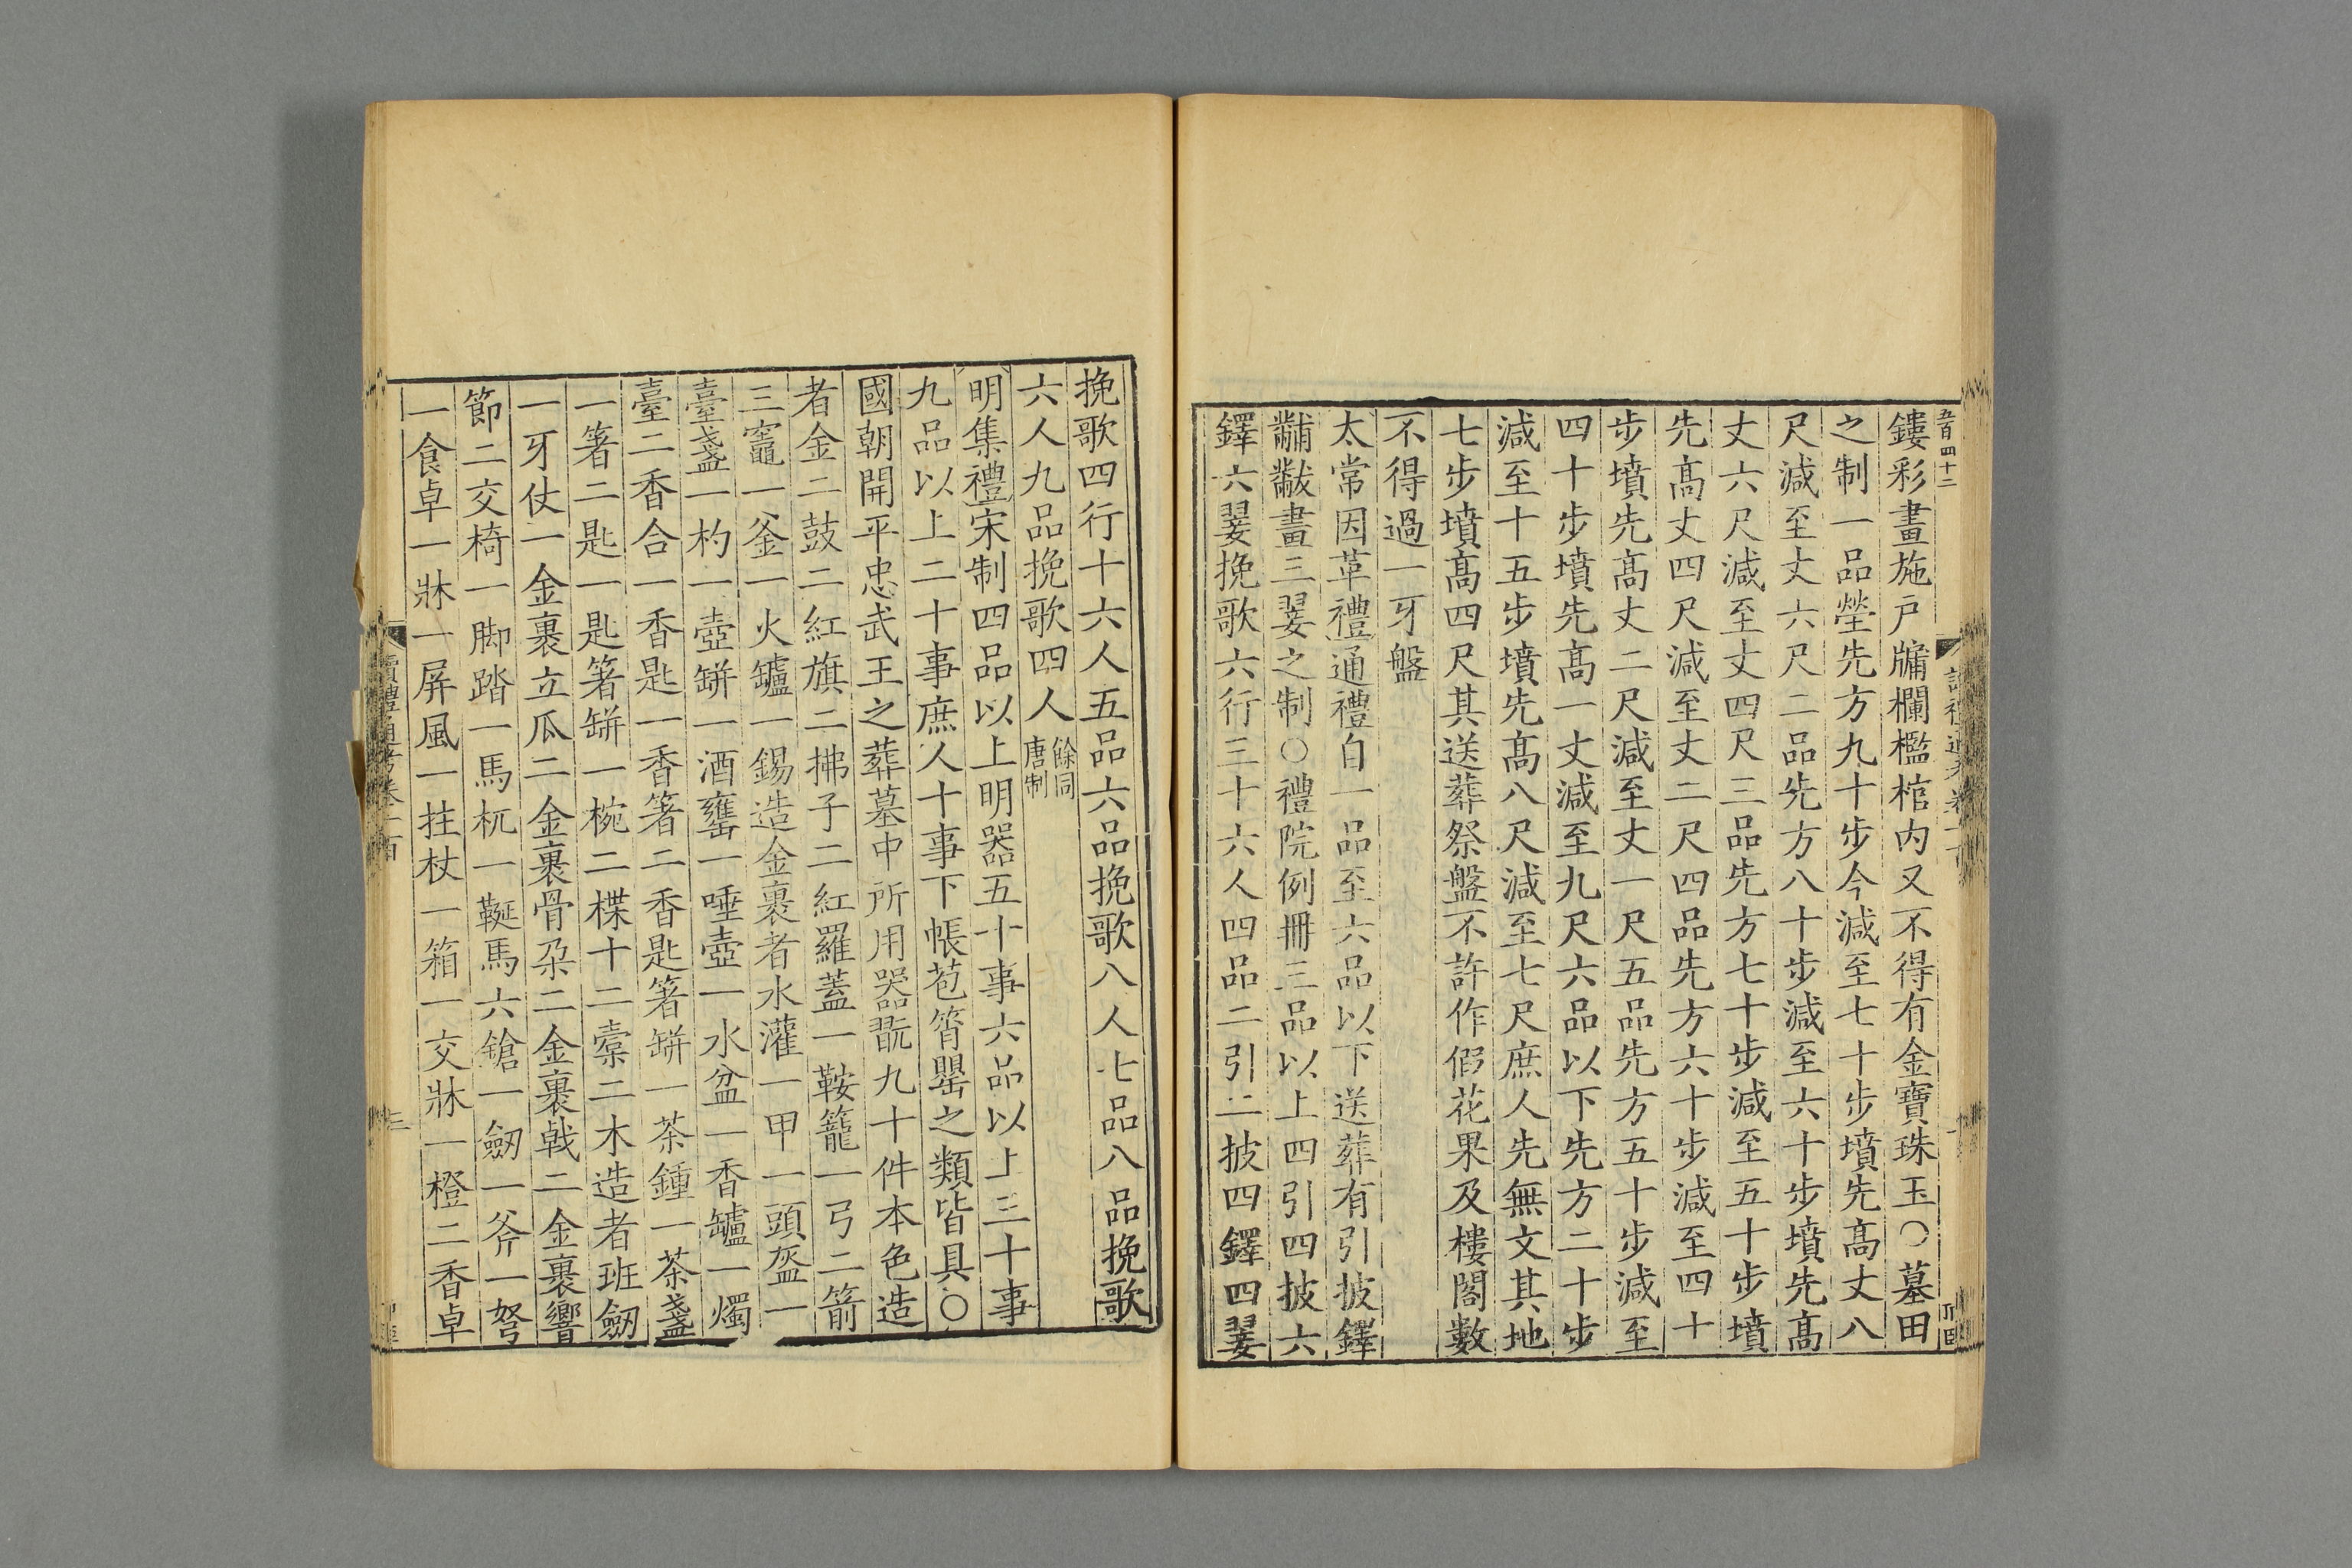 五百四十二
鏤彩畫施戸牗欄檻棺内又不得有金寶珠玉○墓田
之制一品塋先方九十步今減至七十步墳先髙丈八
尺減至丈六尺二品先方八十步減至六十步墳先髙
丈六尺減至丈四尺三品先方七十步減至五十步墳
先髙丈四尺減至丈二尺四品先方六十步減至四十
步墳先髙丈二尺減至丈一尺五品先方五十步減至
四十步墳先髙一丈減至九尺六品以下先方二十步
減至十五步墳先髙八尺減至七尺庶人先無文其地
七步墳髙四尺其送葬祭盤不許作假花果及樓閣數
不得過一牙盤
太常因革禮通禮自一品至六品以下送葬有引披鐸
黼黻畫三翣之制○禮院例冊三品以上四引四披六
鐸六翣挽歌六行三十六人四品二引二披四鐸四翣
挽歌四行十六人五品六品挽歌八人七品八品挽歌
六人九品挽歌四人餘同唐制
明集禮宋制四品以上明器五十事六品以上三十事
九品以上二十事庶人十事下帳苞筲罌之類皆具○
國朝開平忠武王之葬墓中所用器翫九十件本色造
者金二鼓二紅旗二拂子二紅羅蓋一鞍籠一弓二箭
三竈一釜一火罏一錫造金裹者水灌一甲一頭盔一
臺盞一杓一壺缾一酒罋一唾壺一水盆一香罏一燭
臺二香合一香匙一香箸二香匙箸缾一茶鍾一茶盞
一箸二匙一匙箸缾一椀二楪十二橐二木造者班劒
一牙仗一金裹立瓜二金裹骨朶二金裹戟二金裹響
節二交椅一脚踏一馬杌一鞓馬六鎗一劒一斧一弩
一食卓一牀一屏風一拄杖一箱一交牀一橙二香卓
讀禮通考卷一百
三